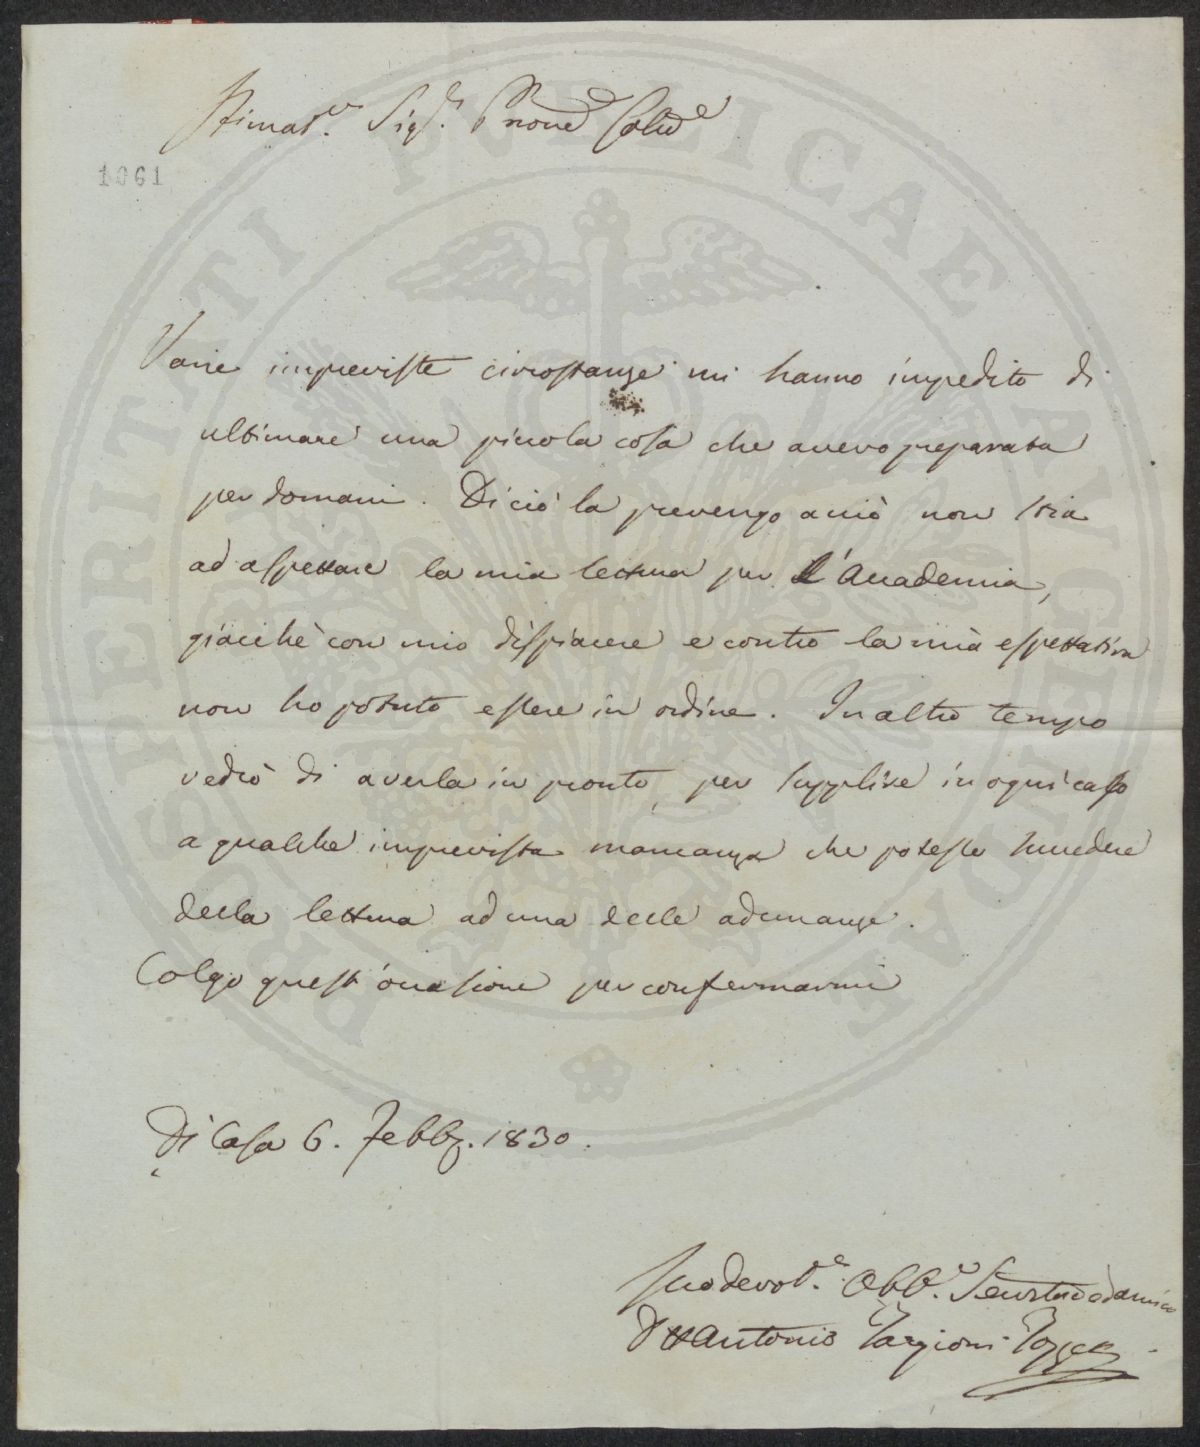 Stimat.e Sig.r Pron.e Col.mo
1061
Varie impreviste circostanze mi hanno impedito di
ultimare una piccola cosa che avevo preparata
per domani. Di ciò la prevengo acciò non stia
ad aspettare la mia lettura per l'Accademia,
giacchè con mio dispiacere e contro la mia espettativa
non ho potuto essere in ordine. In altro tempo
vedrò di averla in pronto, per supplire in ogni caso
a qualche imprevista mancanza che potesse succedere
della lettura ad una delle adunanze.
Colgo quest'occasione per confermarmi
Di Casa 6. Febb. 1830.
Suo devot.e Obb.o Servitore ed amico
Dtt Antonio Targioni-Tozzetti
PROSPERITATI PVBLICAE AVGENDAE